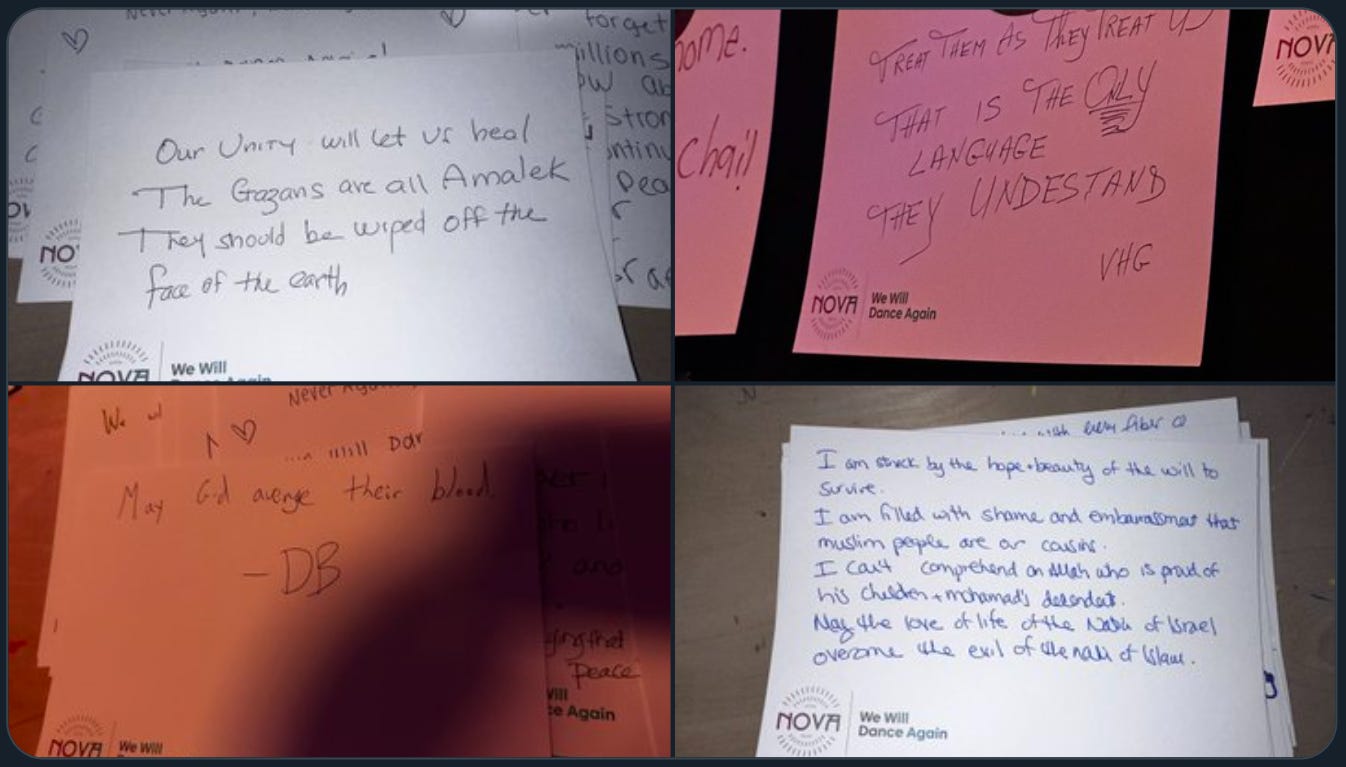 Never Again,
forget
millions
Dance Again!
ow ab
Stron
ntinu
Dea
Our Unity will let us heal
The Gazans are all Amalek
They should be wiped off the
face of the earth
NO
NOVA
We Will
Dance Again
ome.
Chai!
TREAT THEM AS THEY TREAT US
THAT IS THE ONLY
LANGUAGE
THEY UNDESTAND
VHG
NOVA
We Will
Dance Again
NOVA
We wi
Never Again,
Will Dan
May G-d avenge their blood.
- DB
and
Peace
Will
ce Again
NOVA
We Will
with every fiber o
I am struck by the hope + beauty of the will to
survive.
I am filled with shame and embarrassment that
muslim people are our cousins.
I can't comprehend an Allah who is proud of
his children + mohamad's descendents.
May the love of life of the Nation of Israel
overcome the evil of the nation of Islam.
NOVA
We Will
Dance Again